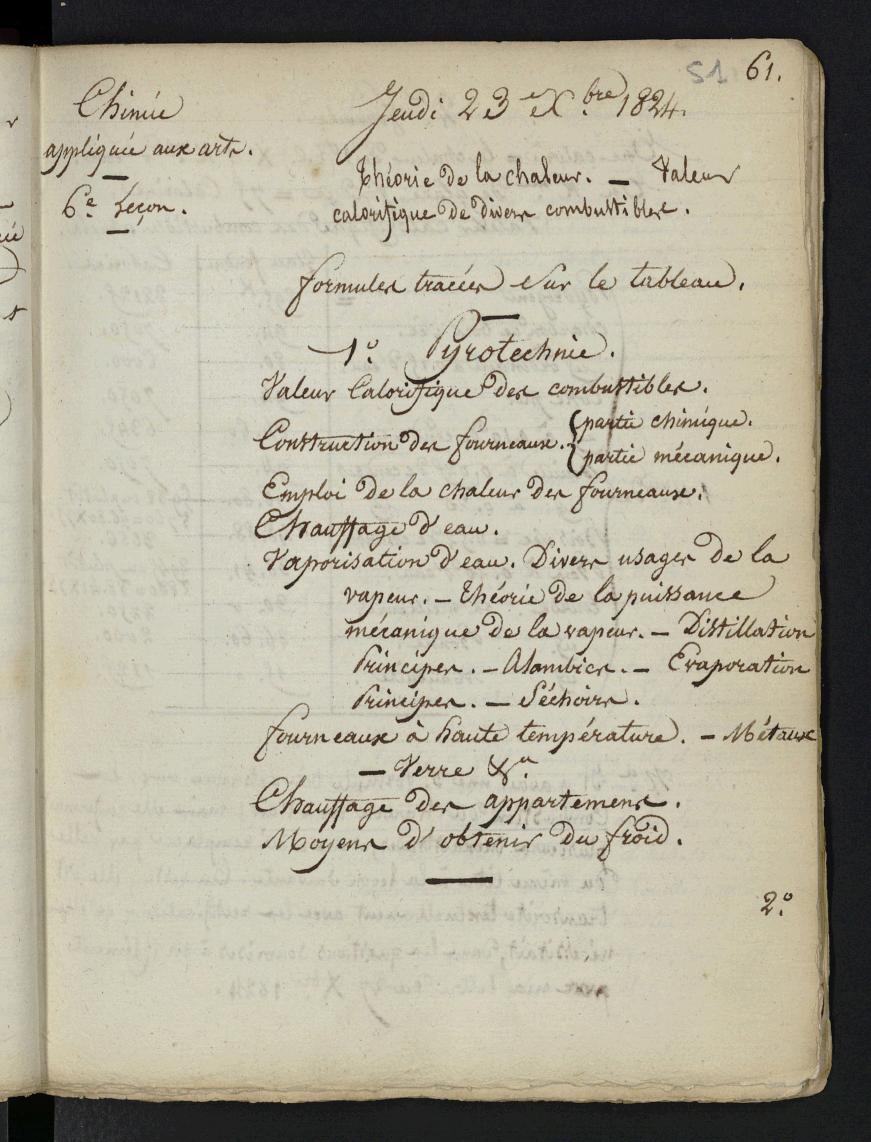 51 61.
Chimie
appliquée aux arts.
6e Leçon.
Jeudi 23 Xbre 1824.
Théorie de la chaleur. — Valeur
calorifique de divers combustibles.
formules tracées sur le tableau.
1o. Pyrotechnie.
Valeur Calorifique des combustibles.
Construction des fourneaux. { partie chimique.
partie mécanique.
Emploi de la chaleur des fourneaux.
Chauffage d'eau.
Vaporisation d'eau. Divers usages de la
vapeur. — Théorie de la puissance
mécanique de la vapeur. — Distillation
Principes. — Alambics. — Evaporation
Principes. — Séchoirs.
fourneaux à haute température. — Métaux
— Verre &a
Chauffage des appartemens.
Moyens d'obtenir du froid.
2o.